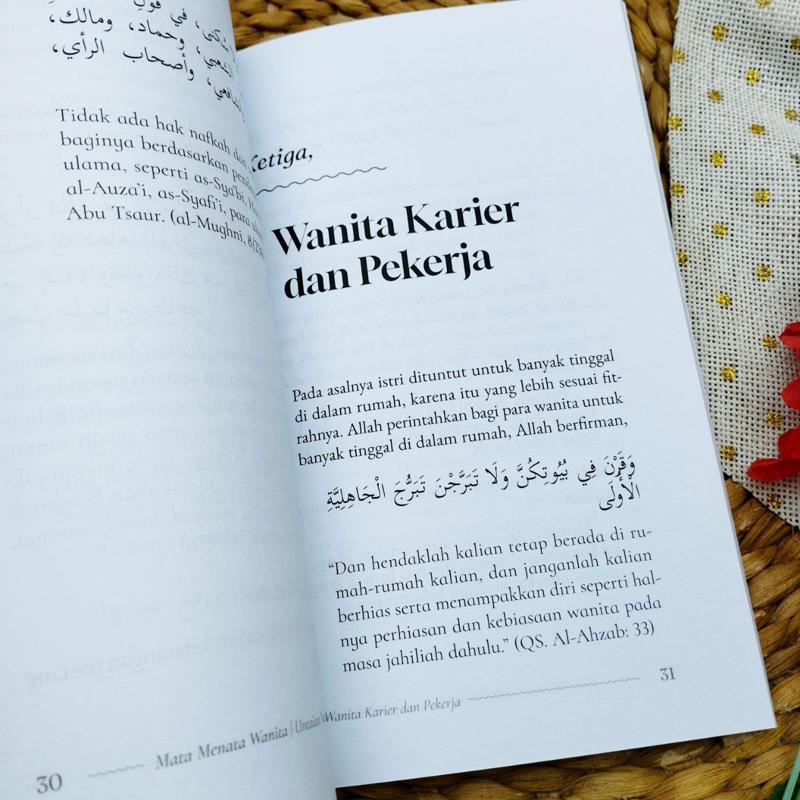 في قول
وحماد، ومالك،
وأصحاب الرأي،
Tidak ada hak nafkah
baginya berdasarkan
ulama, seperti as-Sya'bi,
al-Auza'i, as-Syafi'i, para
Abu Tsaur. (al-Mughni, 8/
30
Mata Menata Wanita | Untaian
Ketiga,
Wanita Karier
dan Pekerja
Pada asalnya istri dituntut untuk banyak tinggal
di dalam rumah, karena itu yang lebih sesuai fit-
rahnya. Allah perintahkan bagi para wanita untuk
banyak tinggal di dalam rumah, Allah berfirman,
وَقَرْنَ فِي بُيُوتِكُنَّ وَلَا تَبَرَّجْنَ تَبَرُّجَ الْجَاهِلِيَّةِ
الْأُولَى
“Dan hendaklah kalian tetap berada di ru-
mah-rumah kalian, dan janganlah kalian
berhias serta menampakkan diri seperti hal-
nya perhiasan dan kebiasaan wanita pada
masa jahiliah dahulu.” (QS. Al-Ahzab: 33)
Wanita Karier dan Pekerja
31